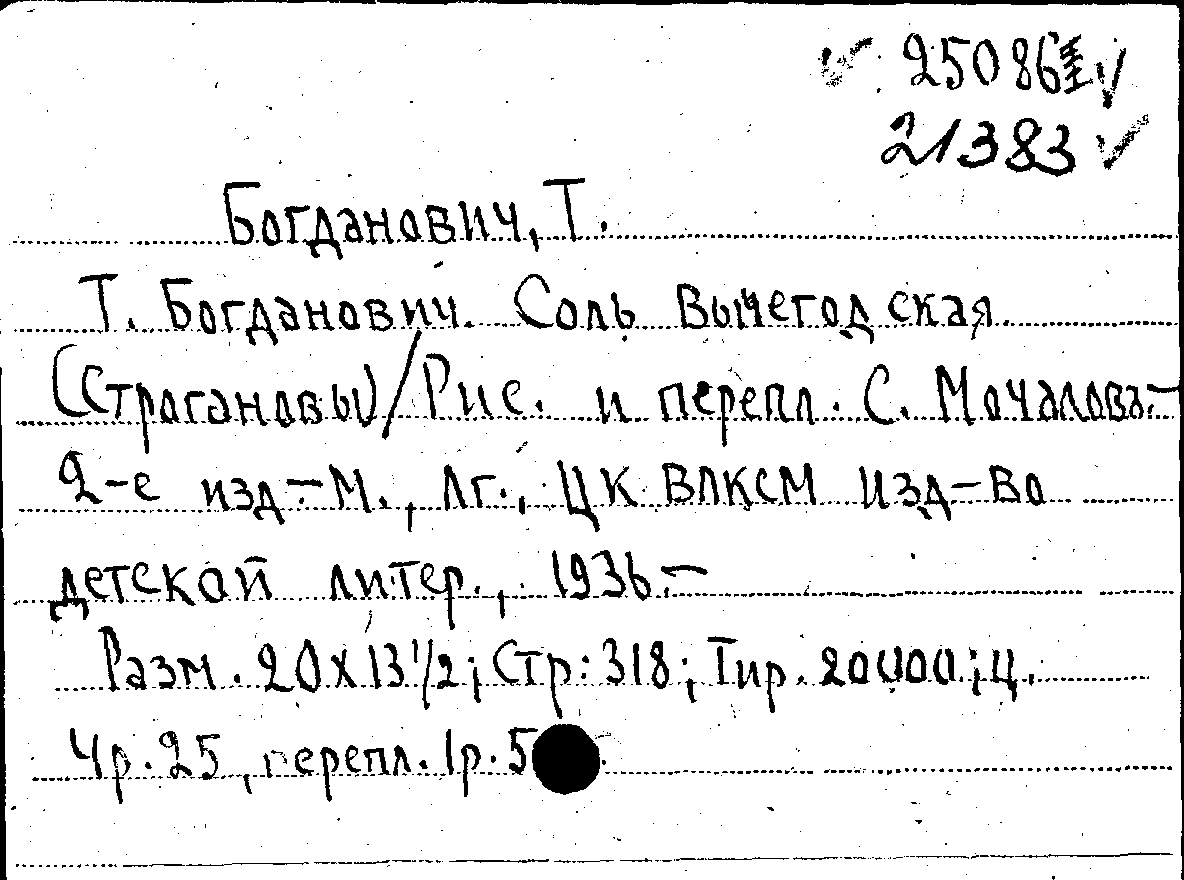 25086
21383
Богданович, Т.
Т. Богданович. Соль Вычегодская.
(Строгановы)/Рис. и перепл. С. Мочалова.-
2-е изд.-М., Лг., ЦК ВЛКСМ Изд-во
детской литер., 1936.-
Разм. 20х13 1/2; Стр: 318; Тир. 20000; Ц.
4р.25, перепл. 1р.5